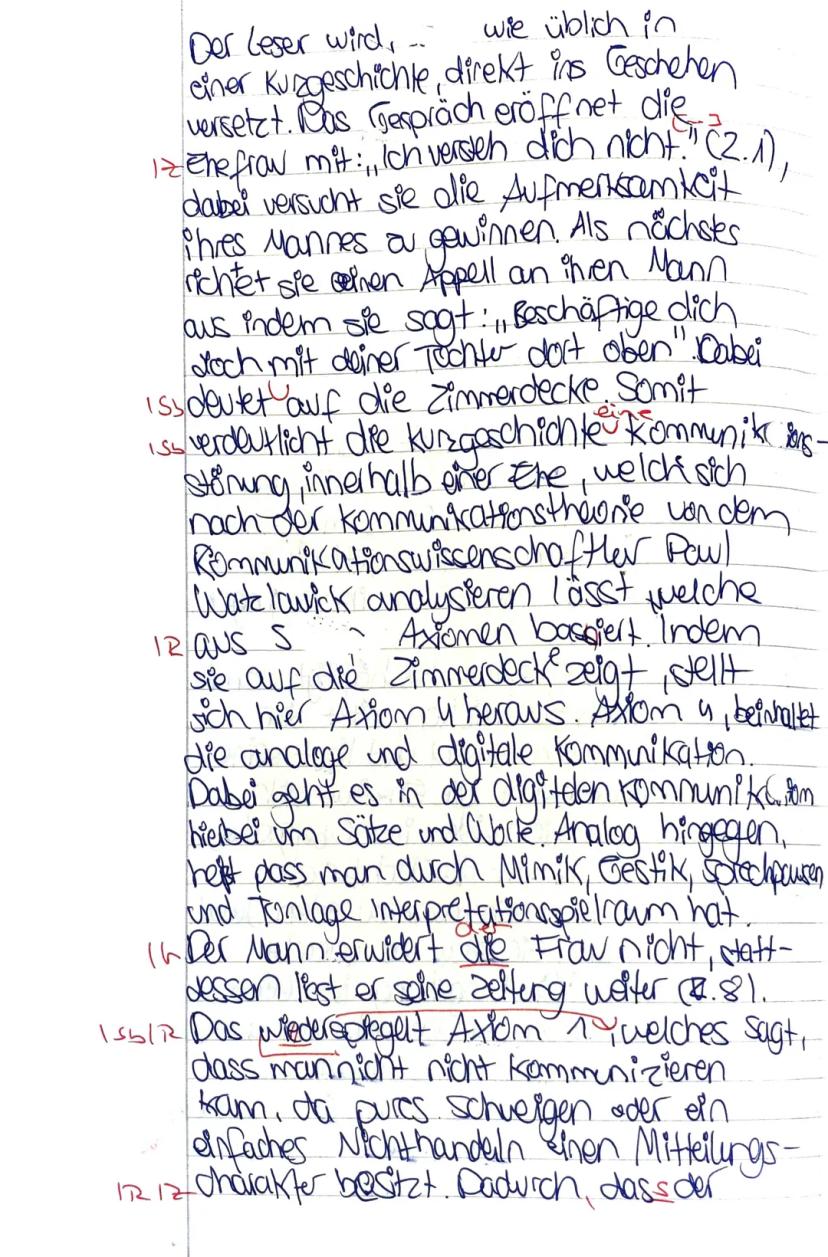 Der Leser wird, wie üblich in
einer Kurzgeschichte, direkt ins Geschehen
versetzt. Das Gespräch eröffnet die
[--]
1Z Ehefrau mit: „Ich versteh dich nicht." (Z.1),
dabei versucht sie die Aufmerksamkeit
ihres Mannes zu gewinnen. Als nächstes
richtet sie einen Appell an ihren Mann
aus indem sie sagt: „Beschäftige dich
doch mit deiner Tochter dort oben". Dabei
1Sb deutet auf die Zimmerdecke. Somit
eine
1Sb verdeutlicht die Kurzgeschichte
störung, innerhalb einer Ehe, welch sich
nach der Kommunikationstheorie von dem
Kommunikationswissenschaftler Paul
Watzlawick analysieren lässt, welche
1R aus Axiomen bassiert. Indem
sie auf die Zimmerdecke zeigt, stellt
sich hier Axiom 4 heraus. Axiom 4, beinhaltet
die analoge und digitale Kommunikation.
Dabei geht es in der digitalen Kommunikation
hierbei um Sätze und Worte. Analog hingegen,
heißt dass man durch Mimik, Gestik, Sprechpausen
und Tonlage Interpretationsspielraum hat.
der
1G Der Mann erwidert die Frau nicht, statt-
dessen liest er seine Zeitung weiter (Z.8).
1Sb/R Das wiederspiegelt Axiom 1, welches sagt,
dass man nicht nicht kommunizieren
kann, da pures Schweigen oder ein
einfaches Nichthandeln einen Mitteilungs-
1R 1Z charakter besitzt. Dadurch, dass der